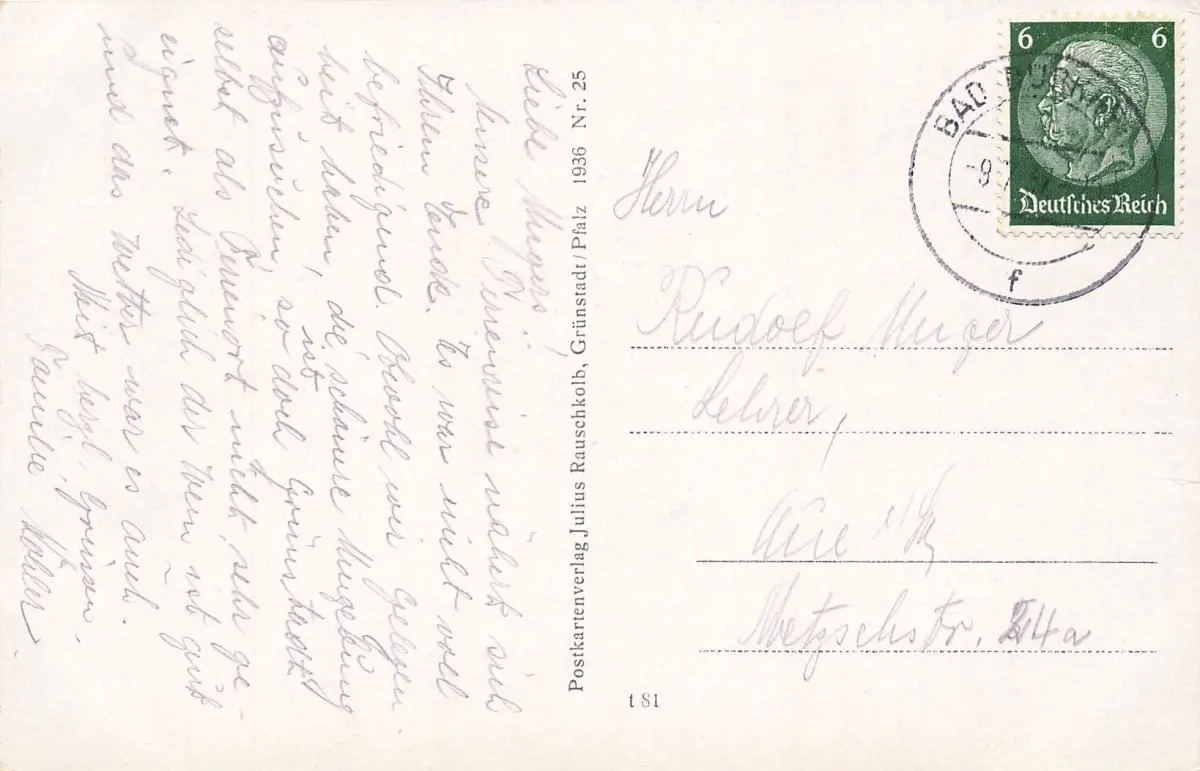 Liebe Ungers!
Unsere Ferienreise nähert sich
Ihrem Ende. Es war nicht voll
befriedigend. Obwohl wir Gelegen-
heit haben, die schönere Umgebung
aufzusuchen, so doch Grünstadt
ist
selbst als Ferienort nicht sehr ge-
eignet. Lediglich der Wein ist gut
und das Wetter war es auch.
Mit herzl. Grüssen,
Familie
Postkartenverlag Julius Rauschkolb, Grünstadt/Pfalz 1936 Nr. 25
6 6
Deutsches Reich
BAD
f
Herrn
Rudolf Unger
Lehrer,
Aue i/
Metzschstr. 14a
t 81